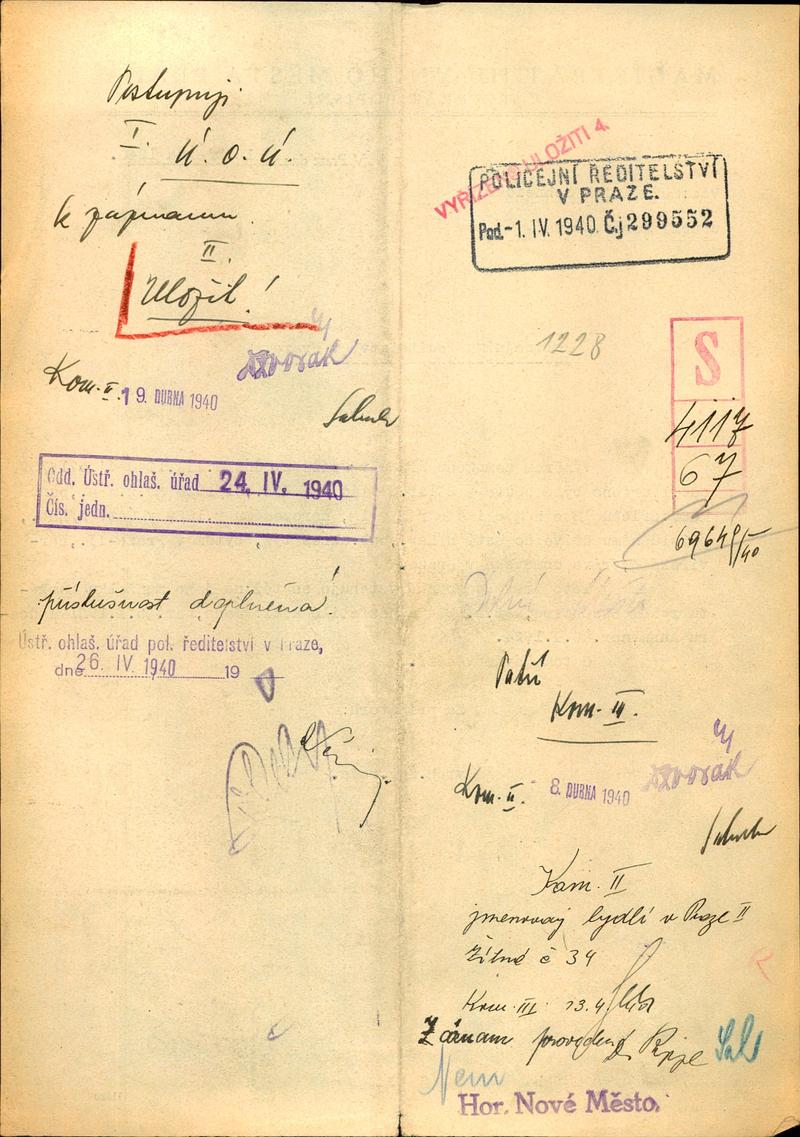 Postupuji
I.
Ú. o. ú.
k záznamu.
II.
Uložit!
Dvořák
Kom. II. 19. DUBNA 1940
Odd. Ústř. ohlaš. úřad 24. IV. 1940
Čís. jedn.
příslušnost doplněna!
Ústř. ohlaš. úřad pol. ředitelství v Praze,
dne 26. IV 1940 19
VYŘÍZENO ULOŽITI 4
POLICEJNÍ ŘEDITELSTVÍ
V PRAZE.
Pod. -1. IV. 1940 Čj 299552
1228
S
4117
67
69649/40
Patří
Kom. III.
Dvořák
Kom. II. 8. DUBNA 1940
Kom. II
jmenovaný bydlí v Praze II
Žitná č 34
Kom. III. 13.4
Záznam proveden
Nem
Hor. Nové Město.